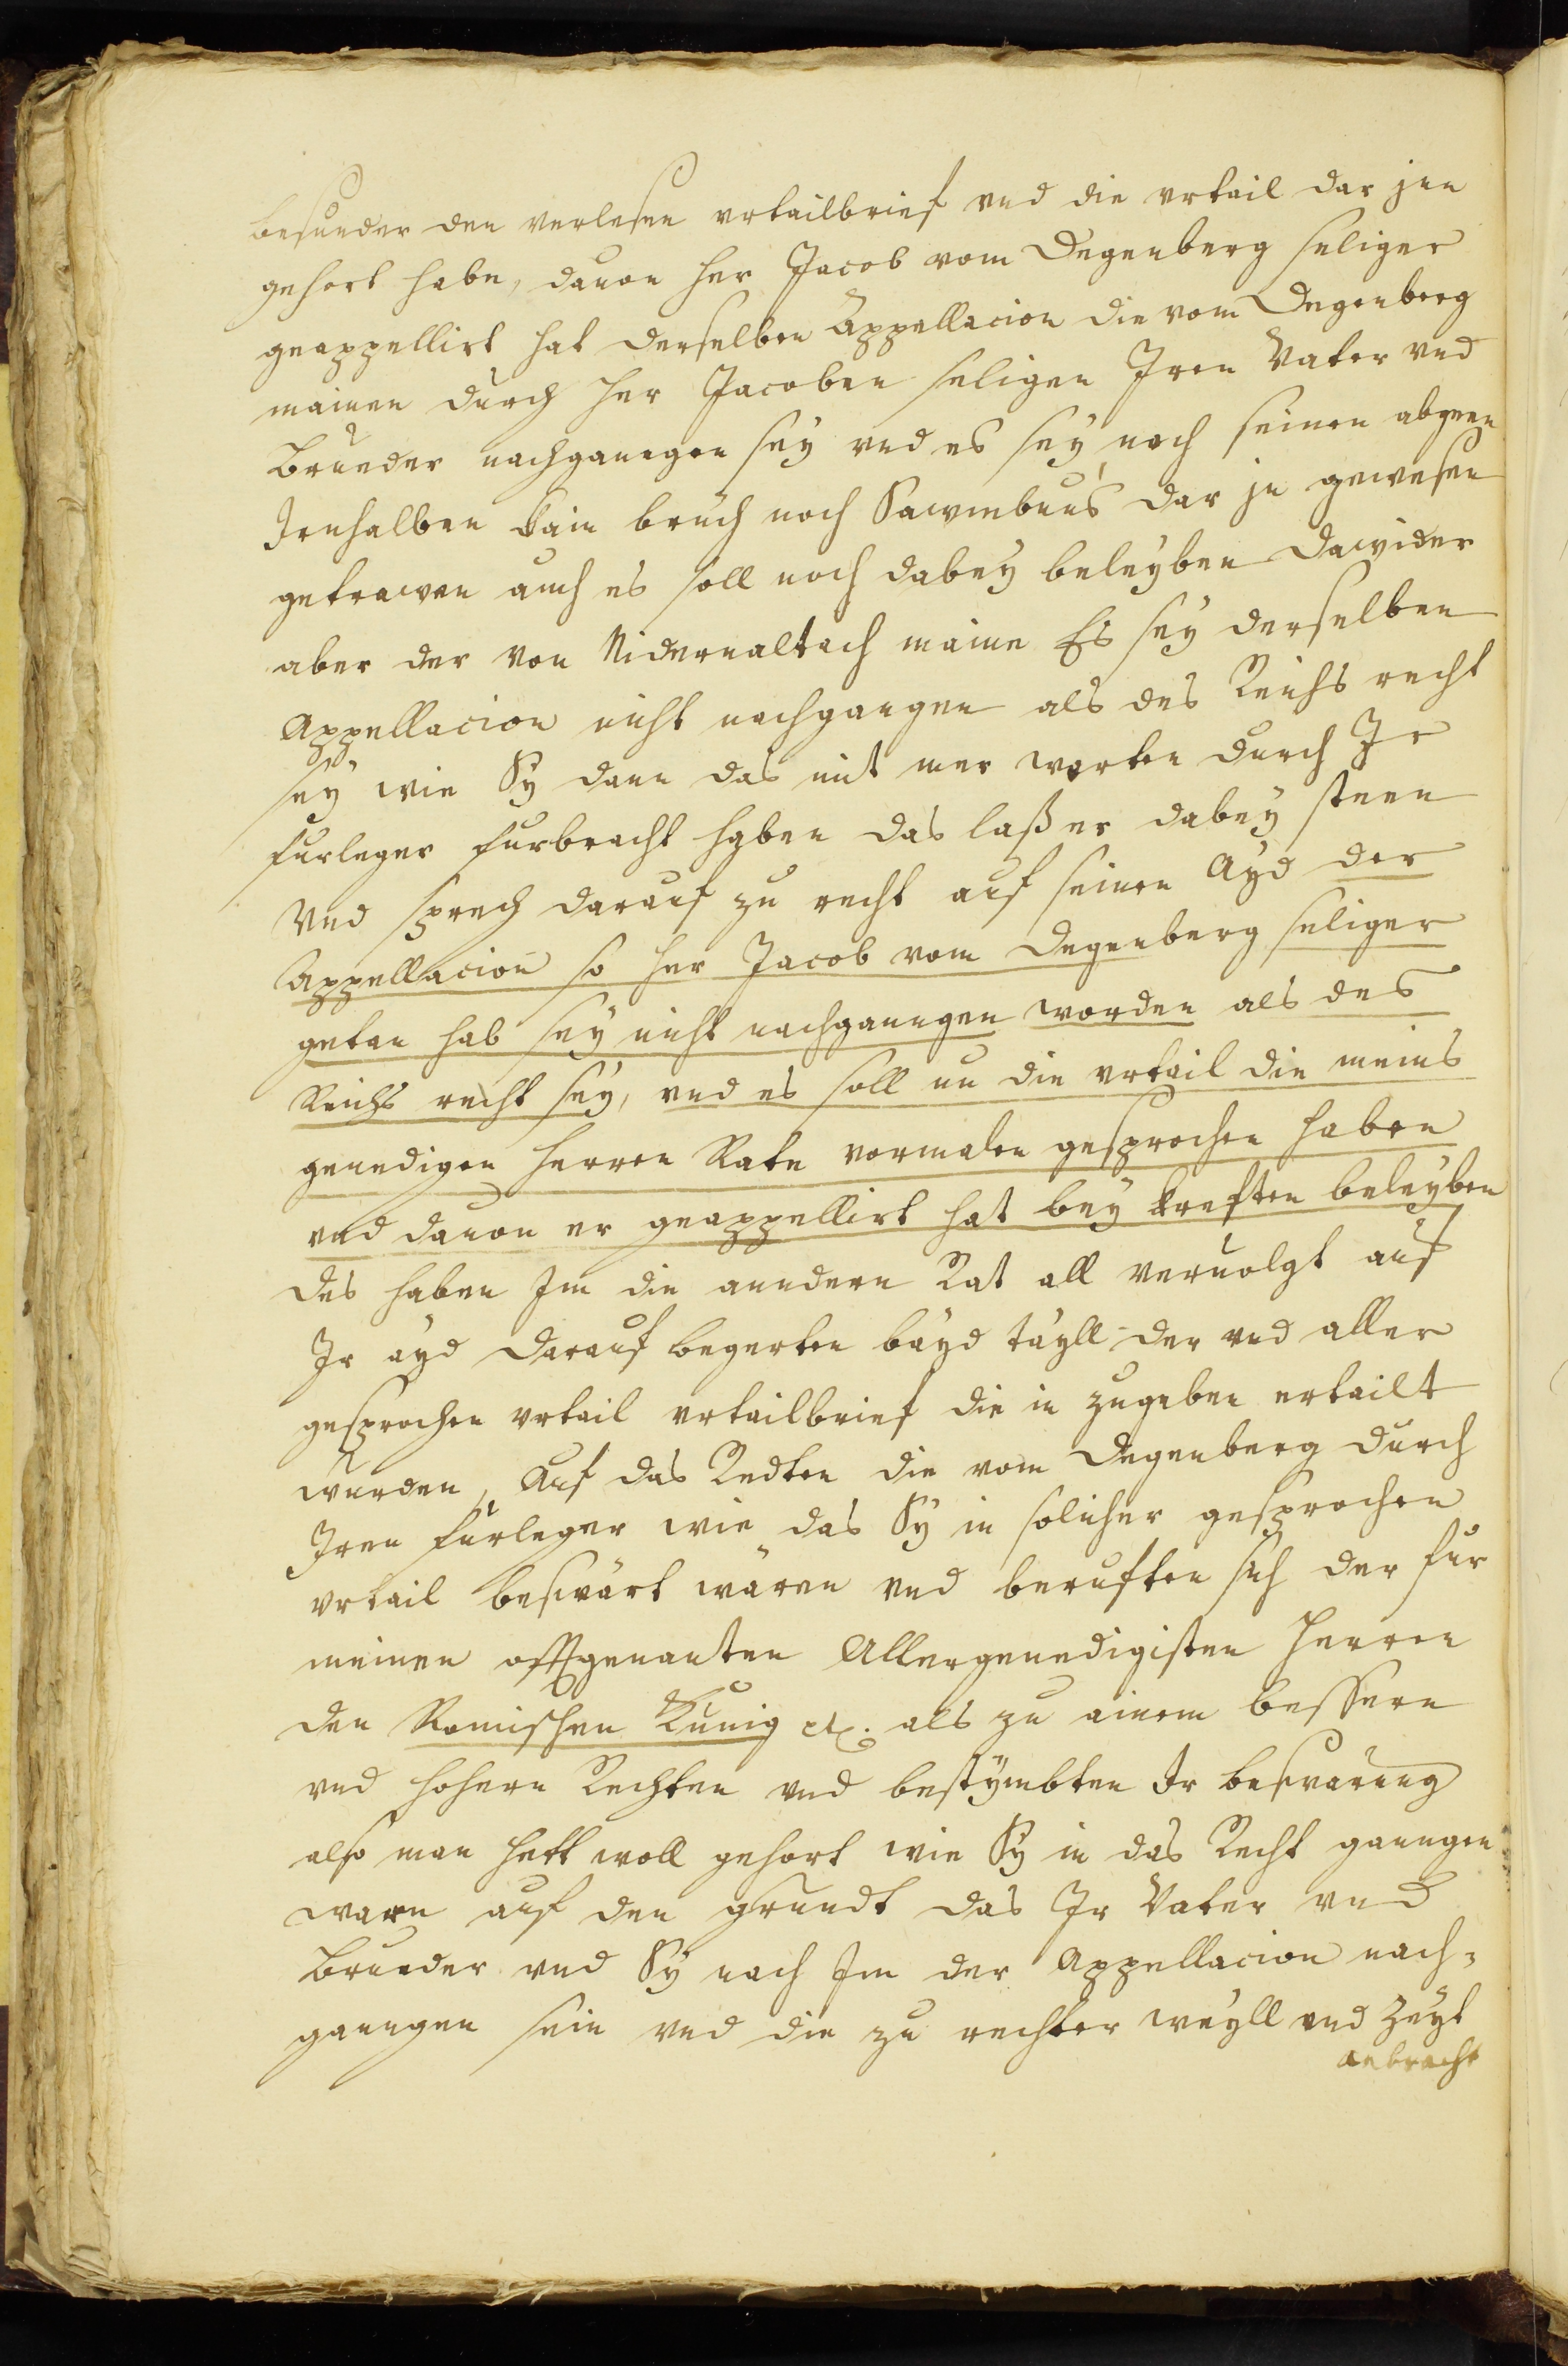 besunder den verlesen vrtailbrief vnd die vrtail dar jnn
gehort habe, dauon her Jacob vom Degenberg seliger
geappellirt hat derselben Appellacion die vom Degenberg
mainen durch her Jacoben seligen Iren Vater vnd
Brueder nachganngen sey vnd es sey nach seinen abgeen
Irenhalben kain bruch noch Sawmbnus dar jn gewesen
getrawen auch es soll noch dabey beleyben Dawider
aber der von Nidernaltach maine Es sey derselben
Appellacion nicht nachgangen als des Reichs recht
sey wie Sy dann das mit mer worten durch Ir
furleger furbracht haben das lass er dabey steen
Vnd sprech darauf zu recht auf seinen Ayd der
Appellacion so her Jacob vom Degenberg seliger
getan hab sey nicht nachganngen worden als des
Reichs recht sey, vnd es soll nu die vrtail die meins
genedigen herren Rate vormalen gesprochen haben
vnd dauon er geappellirt hat bey kreften beleyben
des haben Im die anndern Rat all veruolgt auf
Ir ayd Darauf begerten bayd tayll der vnd aller
gesprochen vrtail vrtailbrief die in zugeben ertailt
wurden, Auf das Redten die vom Degenberg durch
Iren furleger wie das Sy in solicher gesprochen
vrtail beswärt wären vnd berufften sich der für
meinen offtgenanten Allergenedigisten Herren
den Romischen Kunig etc. als zu ainem bessern
vnd hohern Rechten vnd bestymbten Ir beswärung
also man hett woll gehort wie Sy in das Recht ganngen
warn auf den grundt das Ir Vater vnd
Brueder vnd Sy nach Im der Appellacion nach-
ganngen sein vnd die zu rechter weyll vnd Zeyt
anbracht